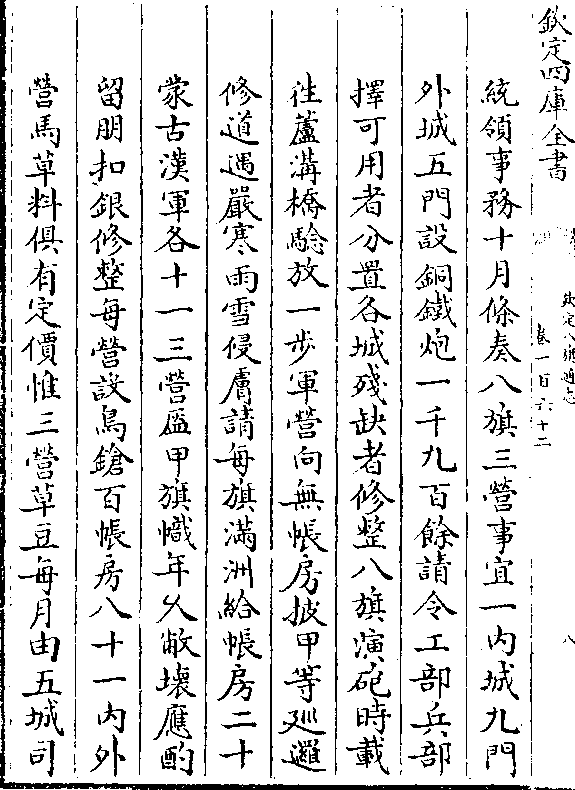 欽定四庫全書
欽定八旗通志
卷一百六十二
八
統領事務十月條奏八旗三營事宜一内城九門
外城五門設銅鐵炮一千九百餘請令工部兵部
擇可用者分置各城殘缺者修整八旗演砲時載
徃蘆溝橋驗放一步軍營向無帳房披甲等廵邏
修道遇嚴寒雨雪侵膚請每旗滿洲給帳房二十
蒙古漢軍各十一三營盔甲旗幟年乆敝壞應酌
留朋扣銀修整每營設鳥鎗百帳房八十一内外
營馬草料俱有定價惟三營草豆每月由五城司